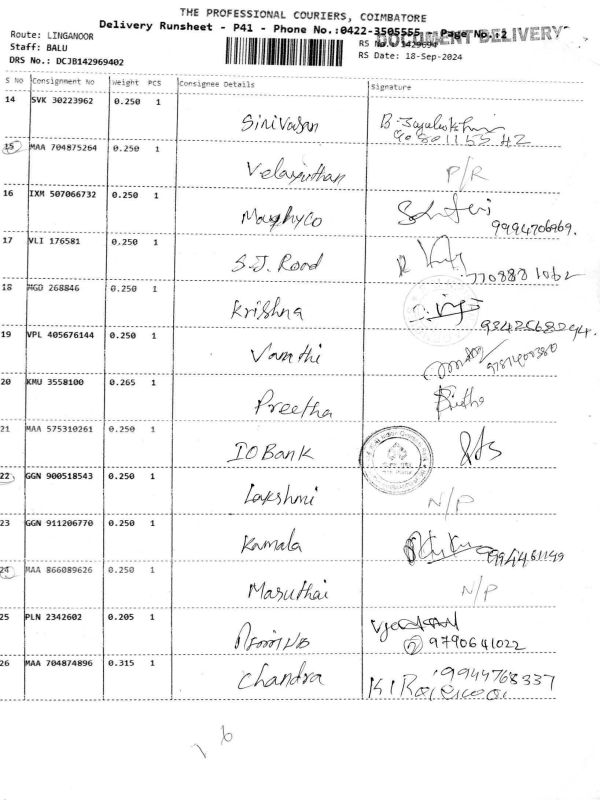 THE PROFESSIONAL COURIERS, COIMBATORE
Delivery Runsheet - P41 - Phone No.:0422-3505555 - Page No.:2
DOCUMENT DELIVERY
Route: LINGANOOR
RS No.: 1429694
Staff: BALU
RS Date: 18-Sep-2024
DRS No.: DCJB142969402
S No Consignment No Weight PCS Consignee Details Signature
14 SVK 30223962 0.250 1
Sirivasan
15 MAA 704875264 0.250 1
Velayuthan P/R
16 IXM 507066732 0.250 1
9994706969.
17 VLI 176581 0.250 1
S.J. Road
18 HGD 268846 0.250 1
Krishna
19 VPL 405676144 0.250 1
Vanthi
20 KMU 3558100 0.265 1
Preetha
21 MAA 575310261 0.250 1
IO Bank
22 GGN 900518543 0.250 1
Lakshmi N/P
23 GGN 911206770 0.250 1
Kamala 9994461149
24 MAA 866089626 0.250 1
Maruthai N/P
25 PLN 2342602 0.205 1
9790641022
26 MAA 704874896 0.315 1
Chandra 9944768337